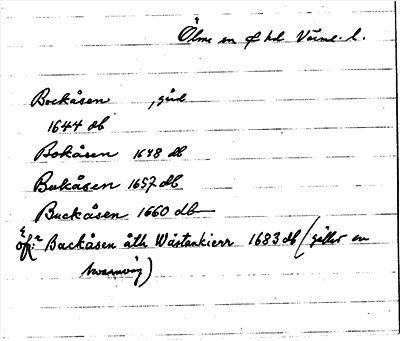 Ölme sn o hd Värml. l.
Bockåsen , gård
1644 db
Bokåsen 1648 db
Bukåsen 1657 db
Buckåsen 1660 db
Öfr:ᵉ Backåsen åth Wästankierr 1683 db (gäller en
)